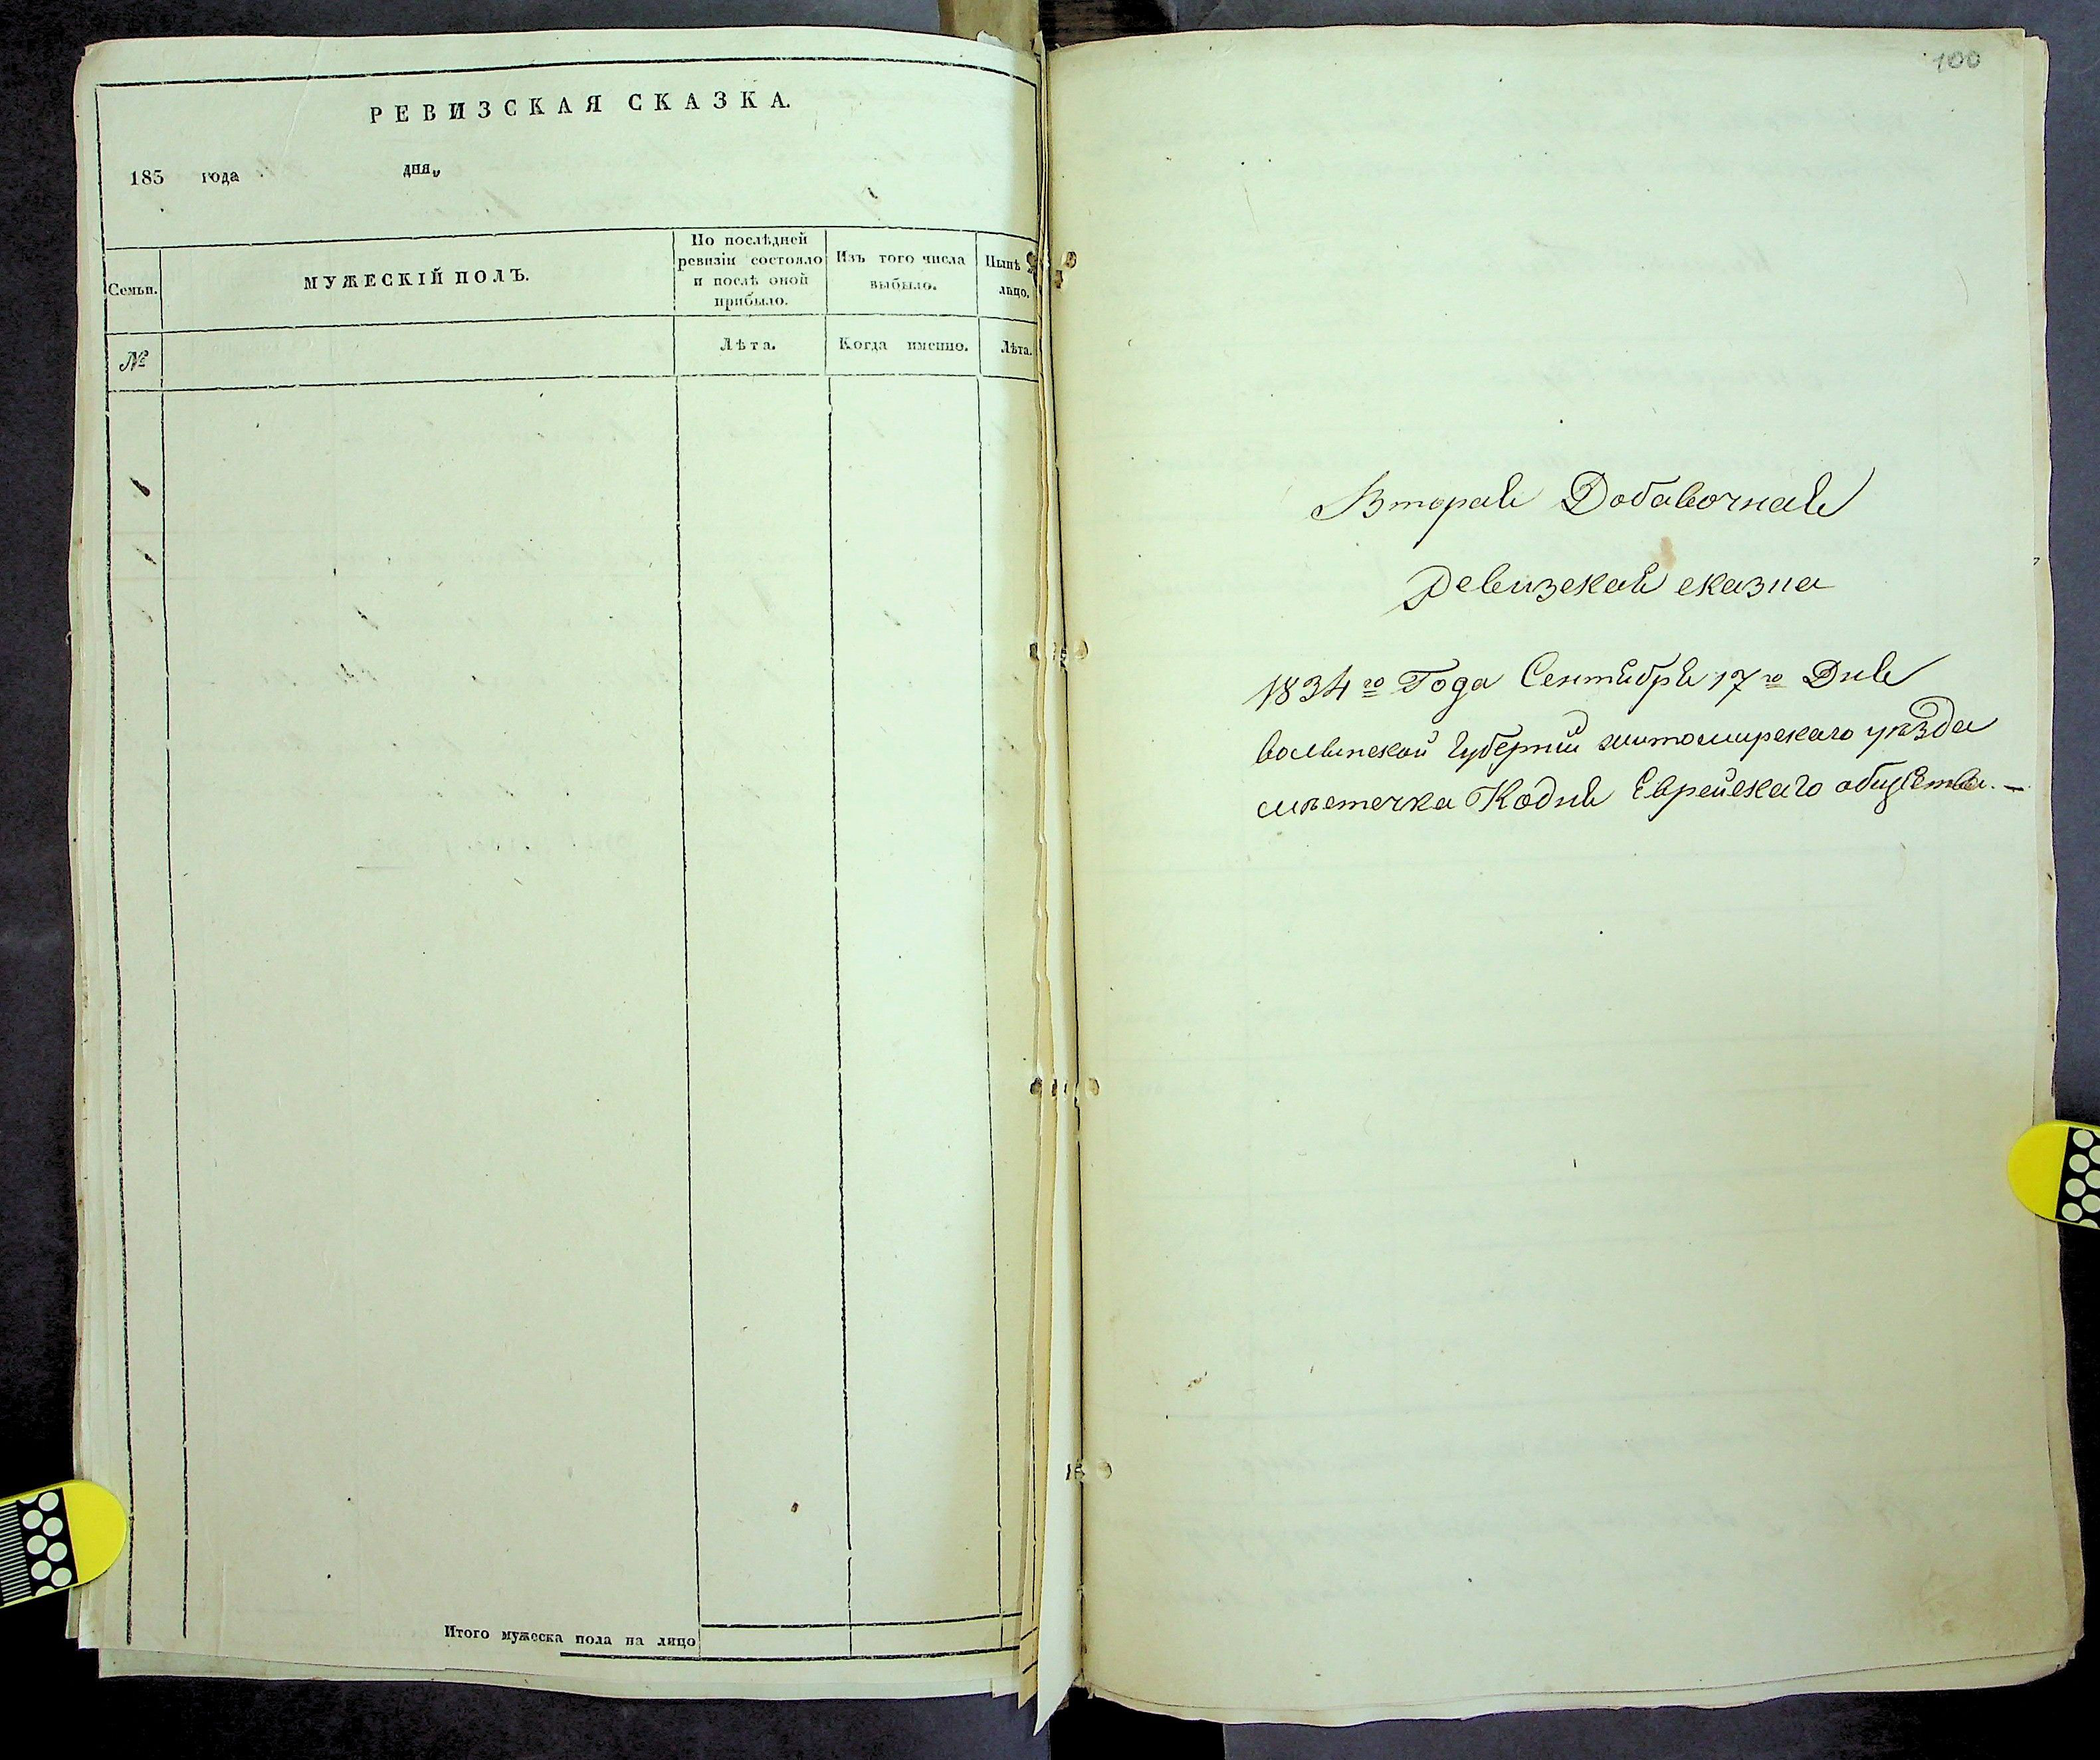 РЕВИЗСКАЯ СКАЗКА.
183 года дня,
Семьи.
МУЖЕСКІЙ ПОЛЪ.
По послѣдней
ревизіи состояло
и послѣ оной
прибыло.
Изъ того числа
выбыло.
Нынѣ
лицо.
№
Лѣта.
Когда именно.
Лѣта.
Итого мужеска пола на лицо
100
Вторая Добавочная
Ревизская сказка
1834го Года Сентября 17го Дня
волынской Губерніи житомирскаго уѣзда
мѣстечка Кодни Еврейскаго общества. –